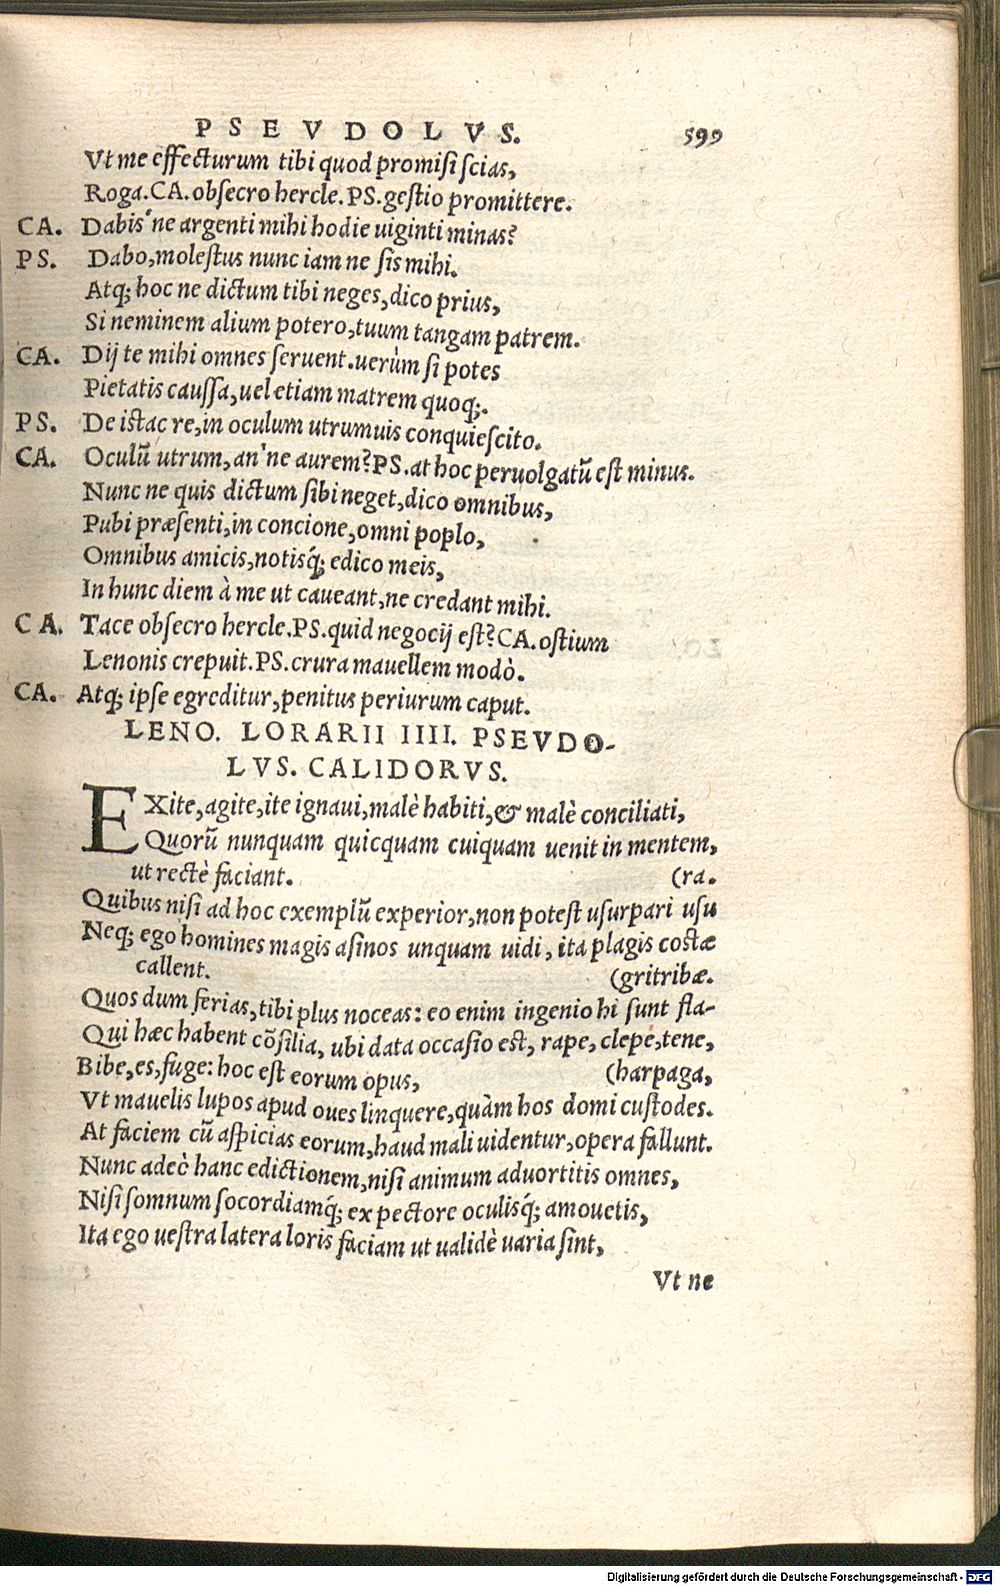 PSEVDOLVS. 599
Vt me effecturum tibi quod promisi scias,
Roga. CA. obsecro hercle. PS. gestio promittere.
CA. Dabis'ne argenti mihi hodie uiginti minas?
PS. Dabo, molestus nunc iam ne sis mihi.
Atq; hoc ne dictum tibi neges, dico prius,
Si neminem alium potero, tuum tangam patrem.
CA. Dij te mihi omnes seruent. uerùm si potes
Pietatis caussa, uel etiam matrem quoq;.
PS. De istac re, in oculum utrumuis conquiescito.
CA. Oculũ utrum, an'ne aurem? PS. at hoc peruolgatũ est minus.
Nunc ne quis dictum sibi neget, dico omnibus,
Pubi præsenti, in concione, omni poplo,
Omnibus amicis, notisq́; edico meis,
In hunc diem à me ut caueant, ne credant mihi.
CA. Tace obsecro hercle. PS. quid negocij est? CA. ostium
Lenonis crepuit. PS. crura mauellem modò.
CA. Atq; ipse egreditur, penitus periurum caput.
LENO. LORARII IIII. PSEVDO-
LVS. CALIDORVS.
EXite, agite, ite ignaui, malè habiti, & malè conciliati,
Quorũ nunquam quicquam cuiquam uenit in mentem,
ut rectè faciant. (ra.
Quibus nisi ad hoc exemplũ experior, non potest usurpari usu
Neq; ego homines magis asinos unquam uidi, ita plagis costæ
callent. (gritribæ.
Quos dum ferias, tibi plus noceas: eo enim ingenio hi sunt fla-
Qui hæc habent cõsilia, ubi data occasio est, rape, clepe, tene,
Bibe, es, fuge: hoc est eorum opus, (harpaga,
Vt mauelis lupos apud oues linquere, quàm hos domi custodes.
At faciem cũ aspicias eorum, haud mali uidentur, opera fallunt.
Nunc adeò hanc edictionem, nisi animum aduortitis omnes,
Nisi somnum socordiamq́; ex pectore oculisq́; amouetis,
Ita ego uestra latera loris faciam ut ualidè uaria sint,
Vt ne
Digitalisierung gefördert durch die Deutsche Forschungsgemeinschaft - DFG